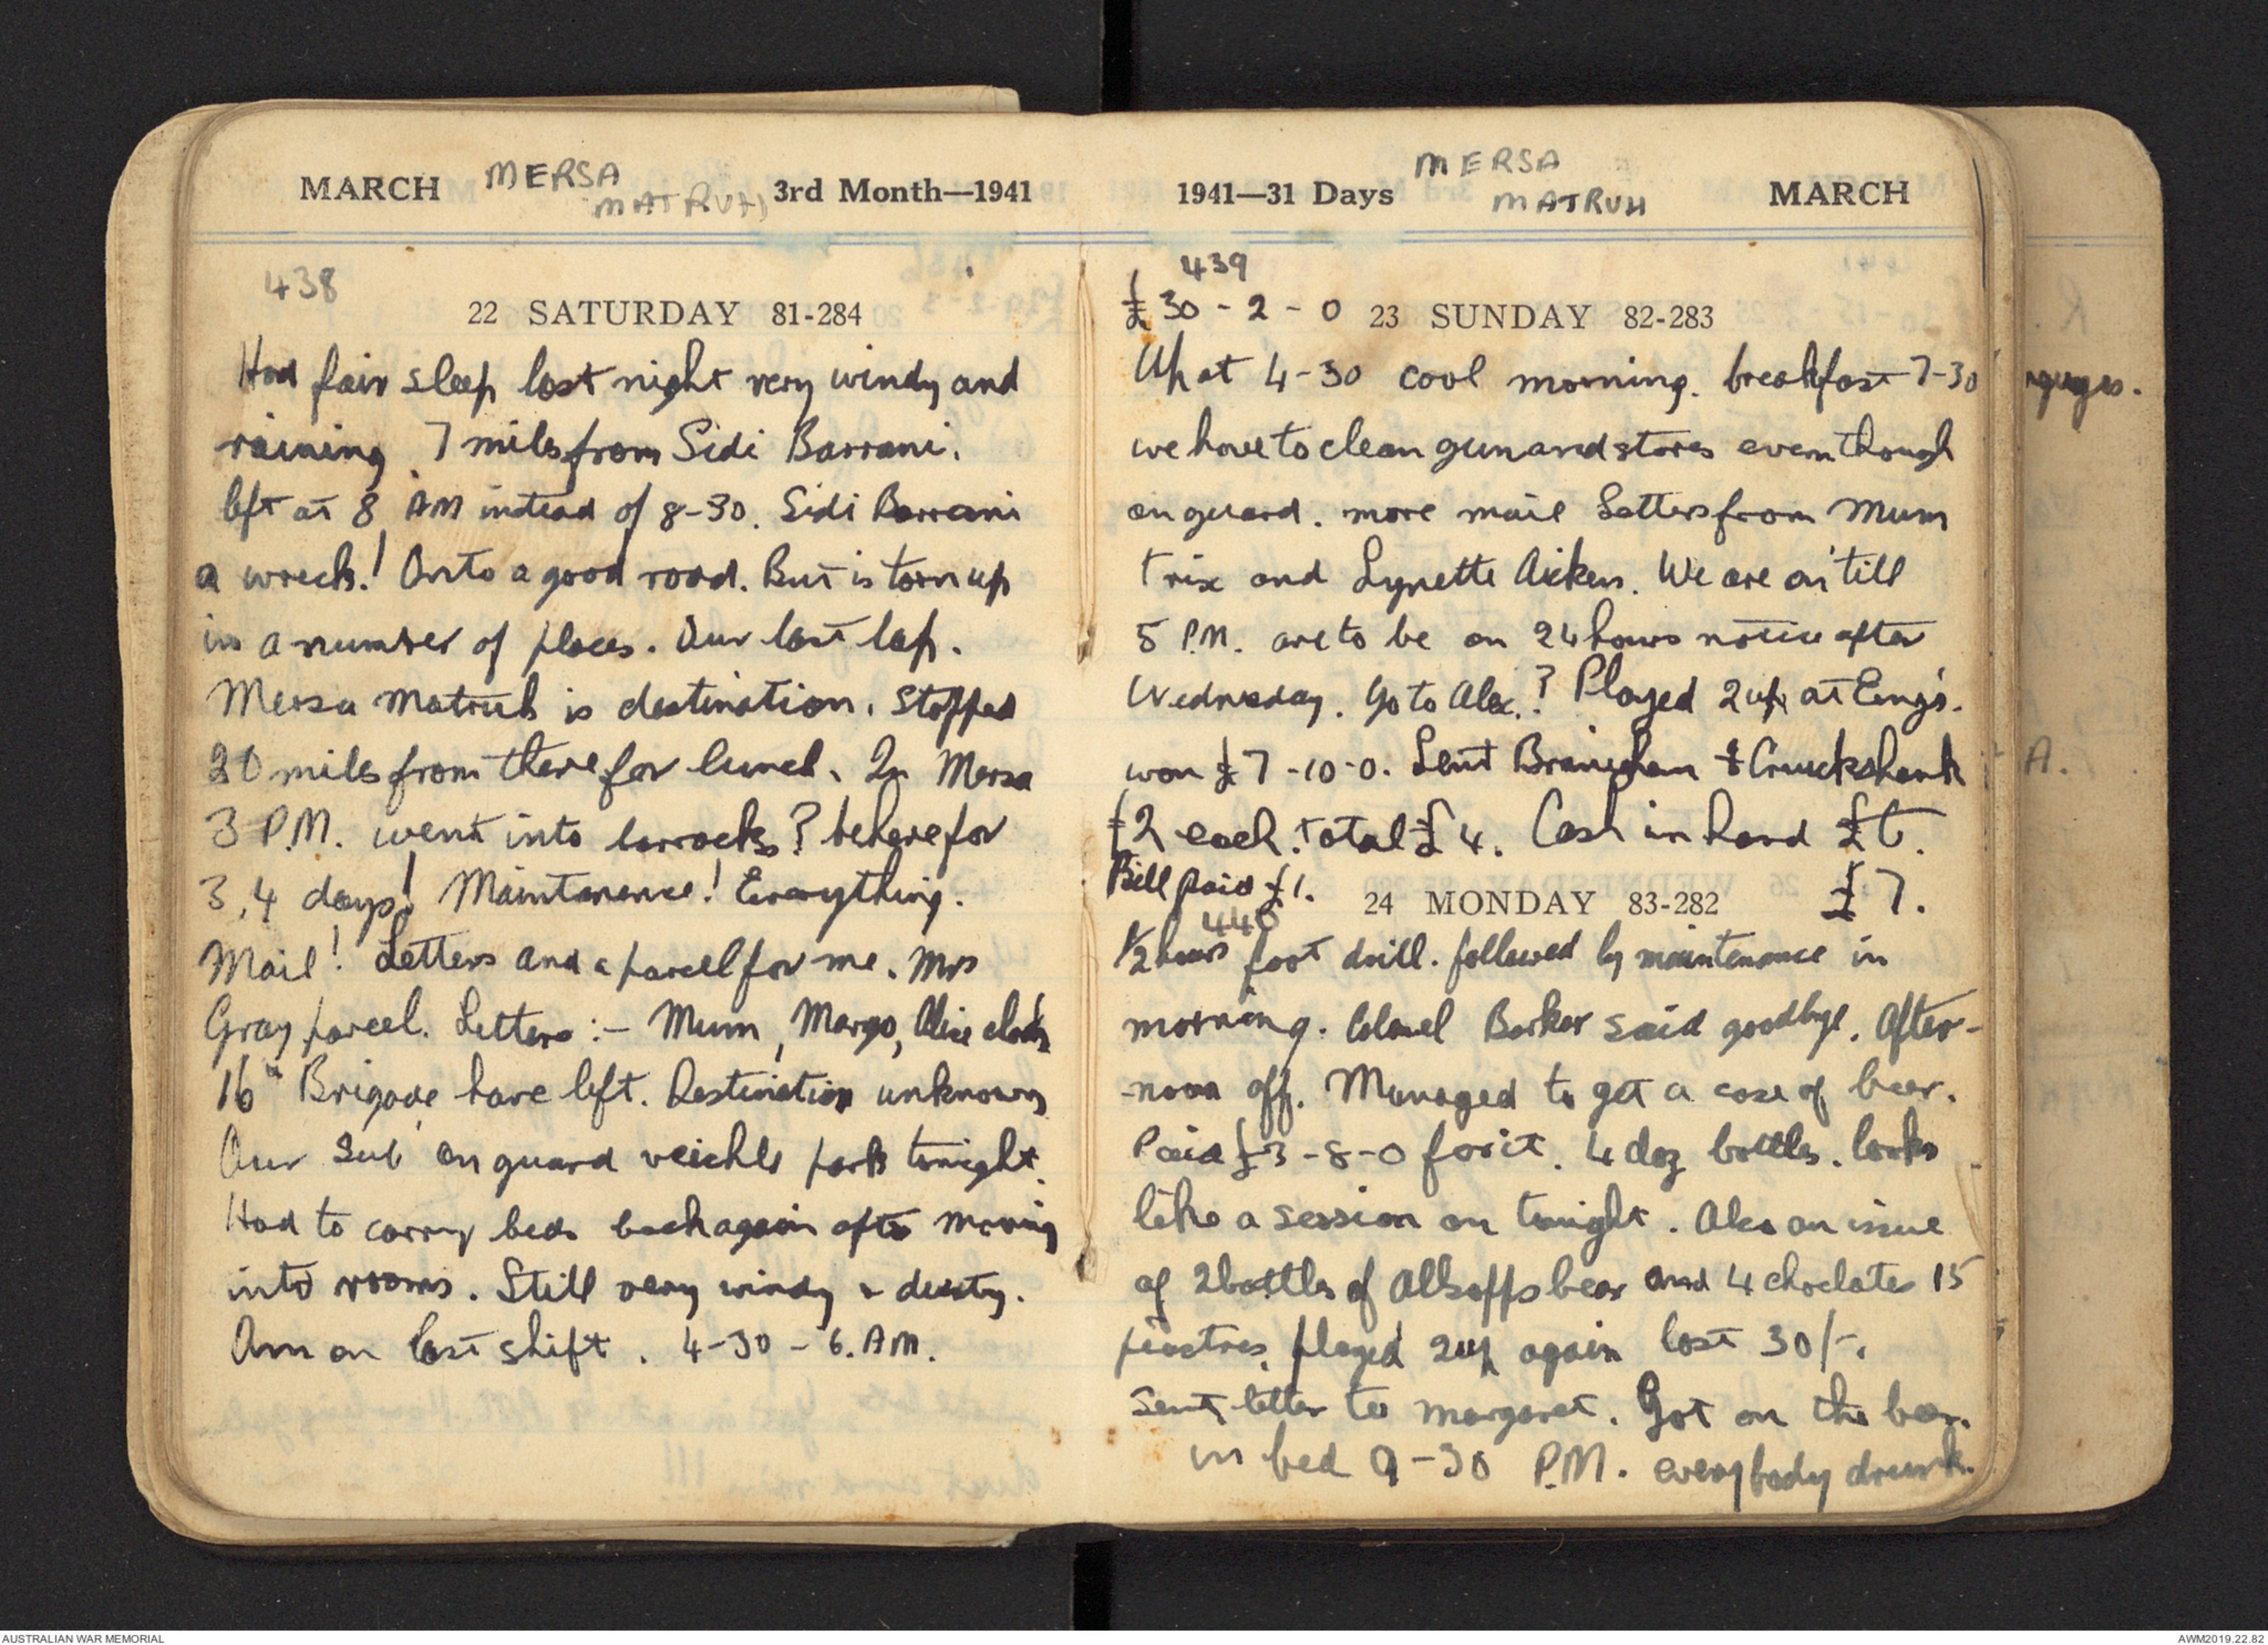 MARCH MERSA MATRUH 3rd Month—1941
438
22 SATURDAY 81-284
Had fair sleep last night very windy and
raining. 7 miles from Sidi Barrani.
left at 8 AM instead of 8-30. Sidi Barrani
a wreck! Onto a good road. But is torn up
in a number of places. Our last lap.
Mersa Matruh is destination. Stopped
20 miles from there for lunch. In Mersa
3 P.M. went into barracks? be here for
3,4 days! Maintenance! Everything.
Mail! Letters and a parcel for me. Mrs
Gray parcel. Letters :- Mum, Margo, Alice
16th Brigade have left. Destination unknown
Our Sub on guard veichle park tonight.
Had to carry beds back again after moving
into rooms. Still very windy & dusty.
Am on last shift. 4-30 - 6. AM.
1941—31 Days MERSA MATRUH MARCH
439
£30 - 2 - 0 23 SUNDAY 82-283
Up at 4-30 cool morning. breakfast 7-30
we have to clean gun and stores even though
on guard. more mail Letters from Mum
Trix and Lynette Aicken. We are on 'till
5 P.M. are to be on 24 hours notice after
Wednesday. Go to Alex.? Played 2up at Eng's.
won £7-10-0. Lent Branigham & Cruickshank
£2 each. total £4. Cash in hand £6.
Bill paid £1. 24 MONDAY 83-282 £7.
440
1/2 hours foot drill. followed by maintenance in
morning. Colonel Barker said goodbye. After-
-noon off. Managed to get a case of beer.
Paid £3-8-0 for it. 4 doz bottles. looks
like a session on tonight. Also an issue
of 2 bottles of Allsopps beer and 4 choclates 15
piastres. played 2up again lost 30/-.
Sent letter to Margaret. Got on the beer.
in bed 9-30 P.M. everybody drunk.
A.
AUSTRALIAN WAR MEMORIAL
AWM2019.22.82